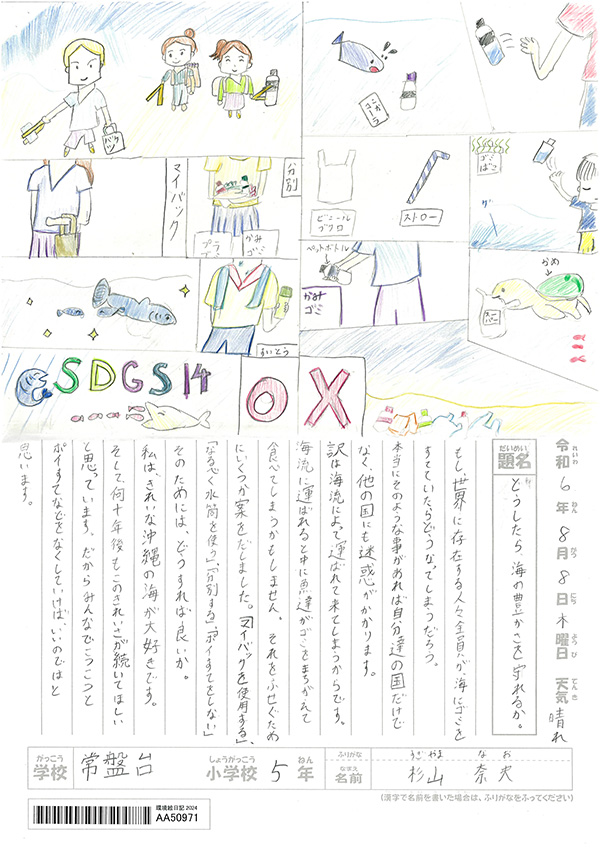 バッグ
コカコーラ
マイバック
分別
プラゴミ
かみゴミ
ビニールブクロ
ストロー
ゴミばこ
ペットボトル
かみゴミ
かめ
スーパー
すいとう
SDGS14
O X
令和6年8月8日木曜日 天気 晴れ
れいわ ねん がつ にち ようび てんき
だいめい
題名 どうしたら、海の豊かさを守れるか。
もし、世界に存在する人々全員が、海にゴミを
すてていたらどうなってしまうだろう。
本当にそのような事があれば自分達の国だけで
なく、他の国にも迷惑がかかります。
訳は海流によって運ばれて来てしまうからです。
海流に運ばれると中に魚達がゴミをまちがえて
食べてしまうかもしません。それをふせぐため
にいくつか案をだしました。「マイバッグを使用する」、
「なるべく水筒を使う」「分別する」「ポイすてをしない」
そのためには、どうすれば良いか。
私は、きれいな沖縄の海が大好きです。
そして何十年後もこのきれいさが続いてほしい
と思っています。だからみんなでこつこつと
ポイすてなどをなくしていけばいいのではと
思います。
がっこう しょうがっこう ねん ふりがな すぎやま なお
学校 常盤台 小学校 5年 なまえ 名前 杉山 奈央
(漢字で名前を書いた場合は、ふりがなをふってください)
環境絵日記2024
AA50971